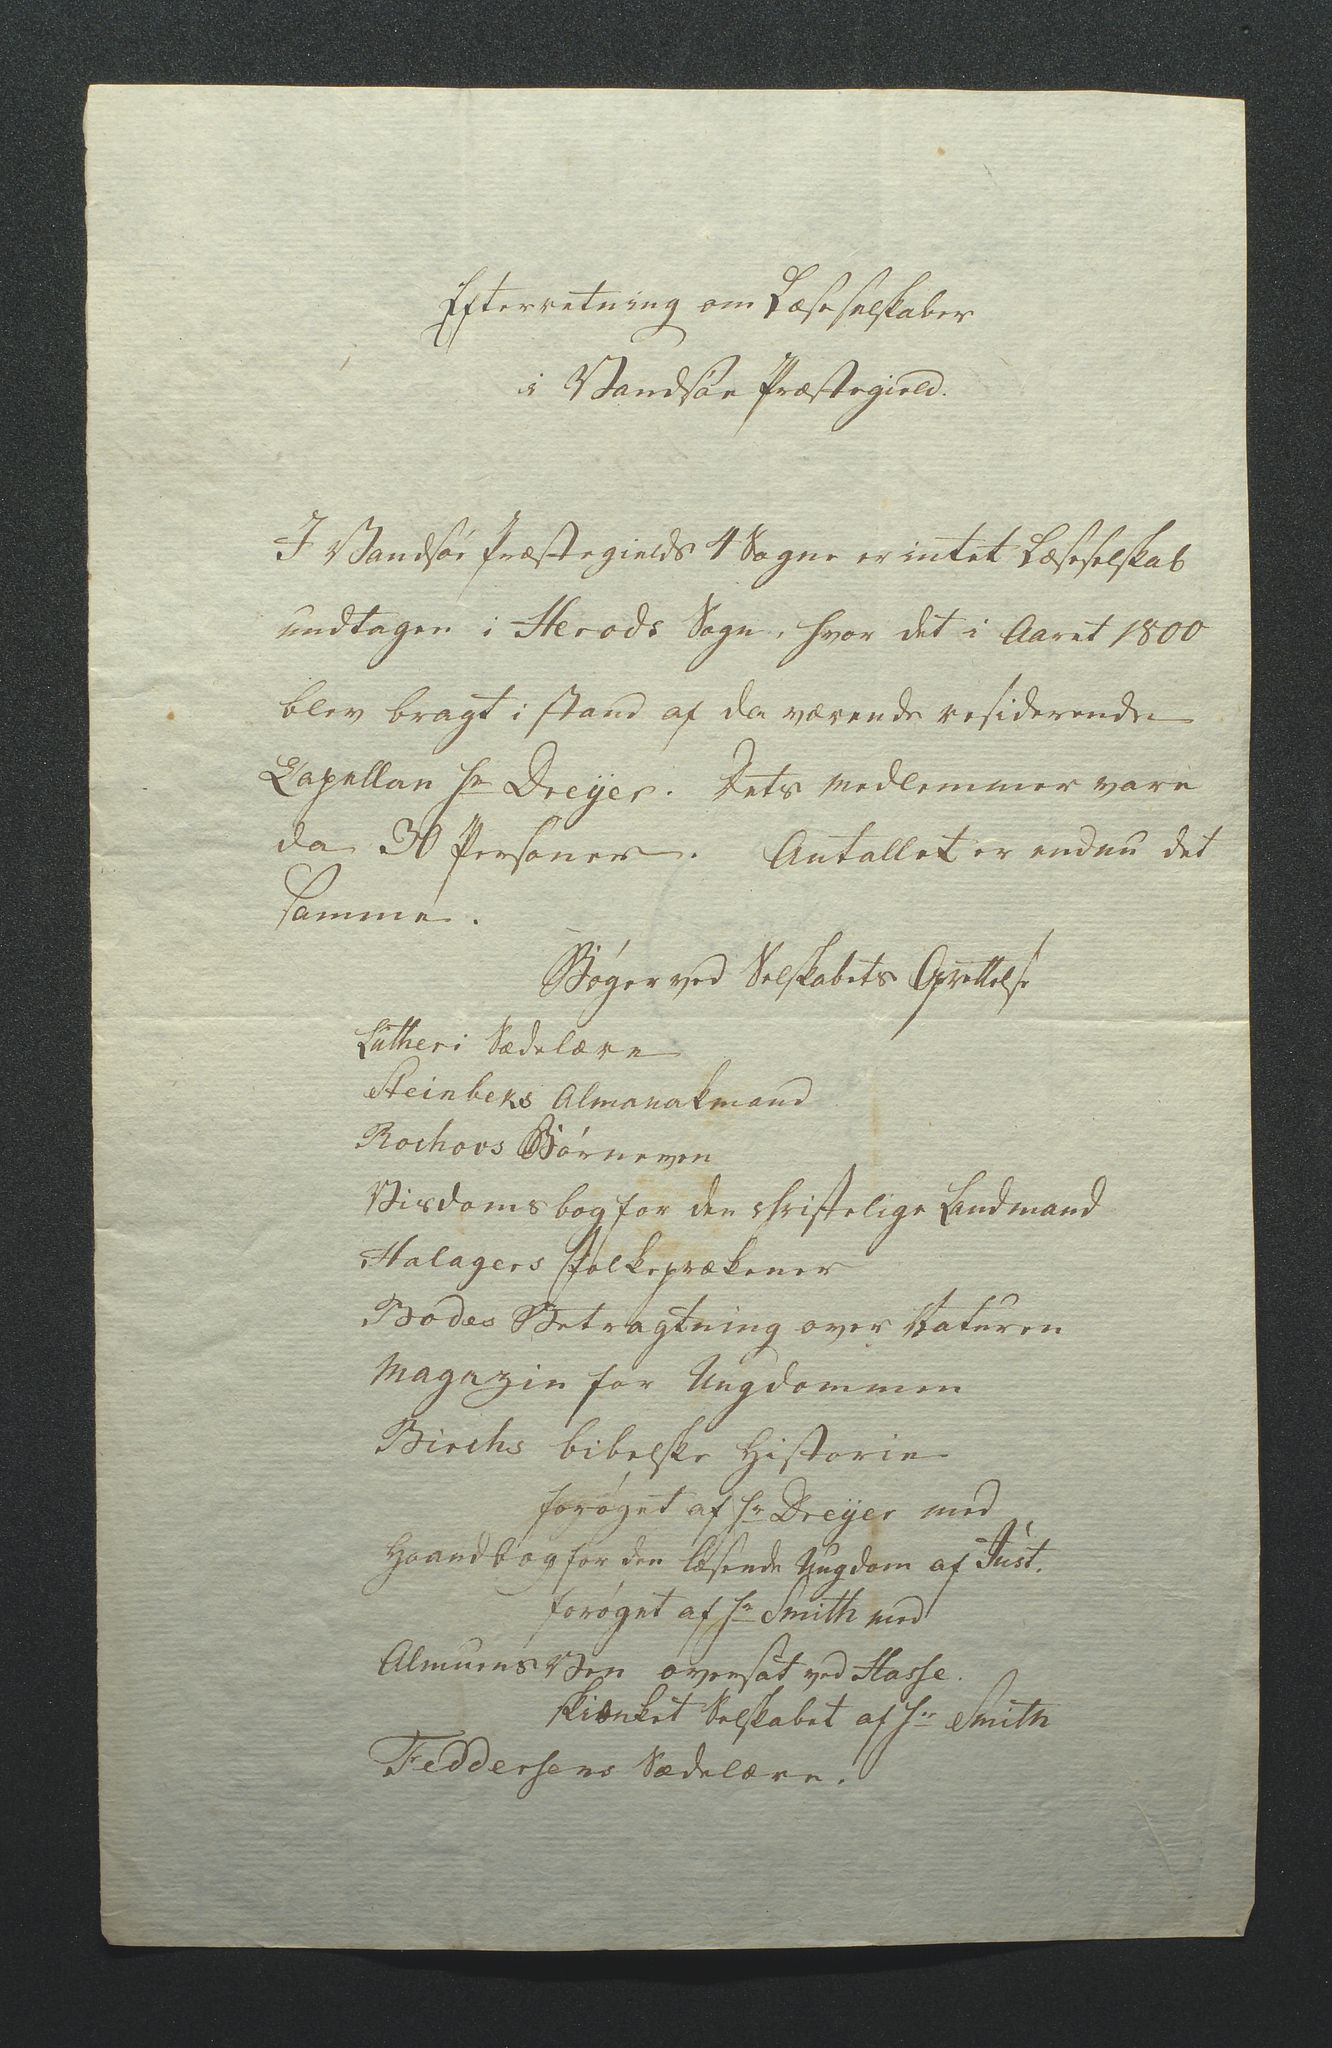 Efterretning om Læseselskaber
i Vandsöe Præstegield.
I Vandsöe Præstegields 4 Sogne er intet Læseselskab
undtagen i Herods Sogn, hvor det i Aaret 1800
blev bragt i stand af da værende residerende
Capellan Hr Dreÿer. Dets Medlemmer vare
da 30 Personer. Antallet er endnu det
samme.
Bøger ved Selskabets Oprettelse
Lutheri Sædelære
Steinbeks Almanakmand
Rochovs Børneven
Visdomsbog for den christelige Landmand
Halagers Folkeprækener
Bodes Betragtning over Naturen
Magazin for Ungdommen
Birchs bibelske Historie
forøget af Hr Dreÿer med
Haandbog for den læsende Ungdom af Just.
forøget af Hr Smith med
Almuens Ven oversat ved Hasse.
skienket Selskabet af Hr Smith
Feddersens Sædelære.